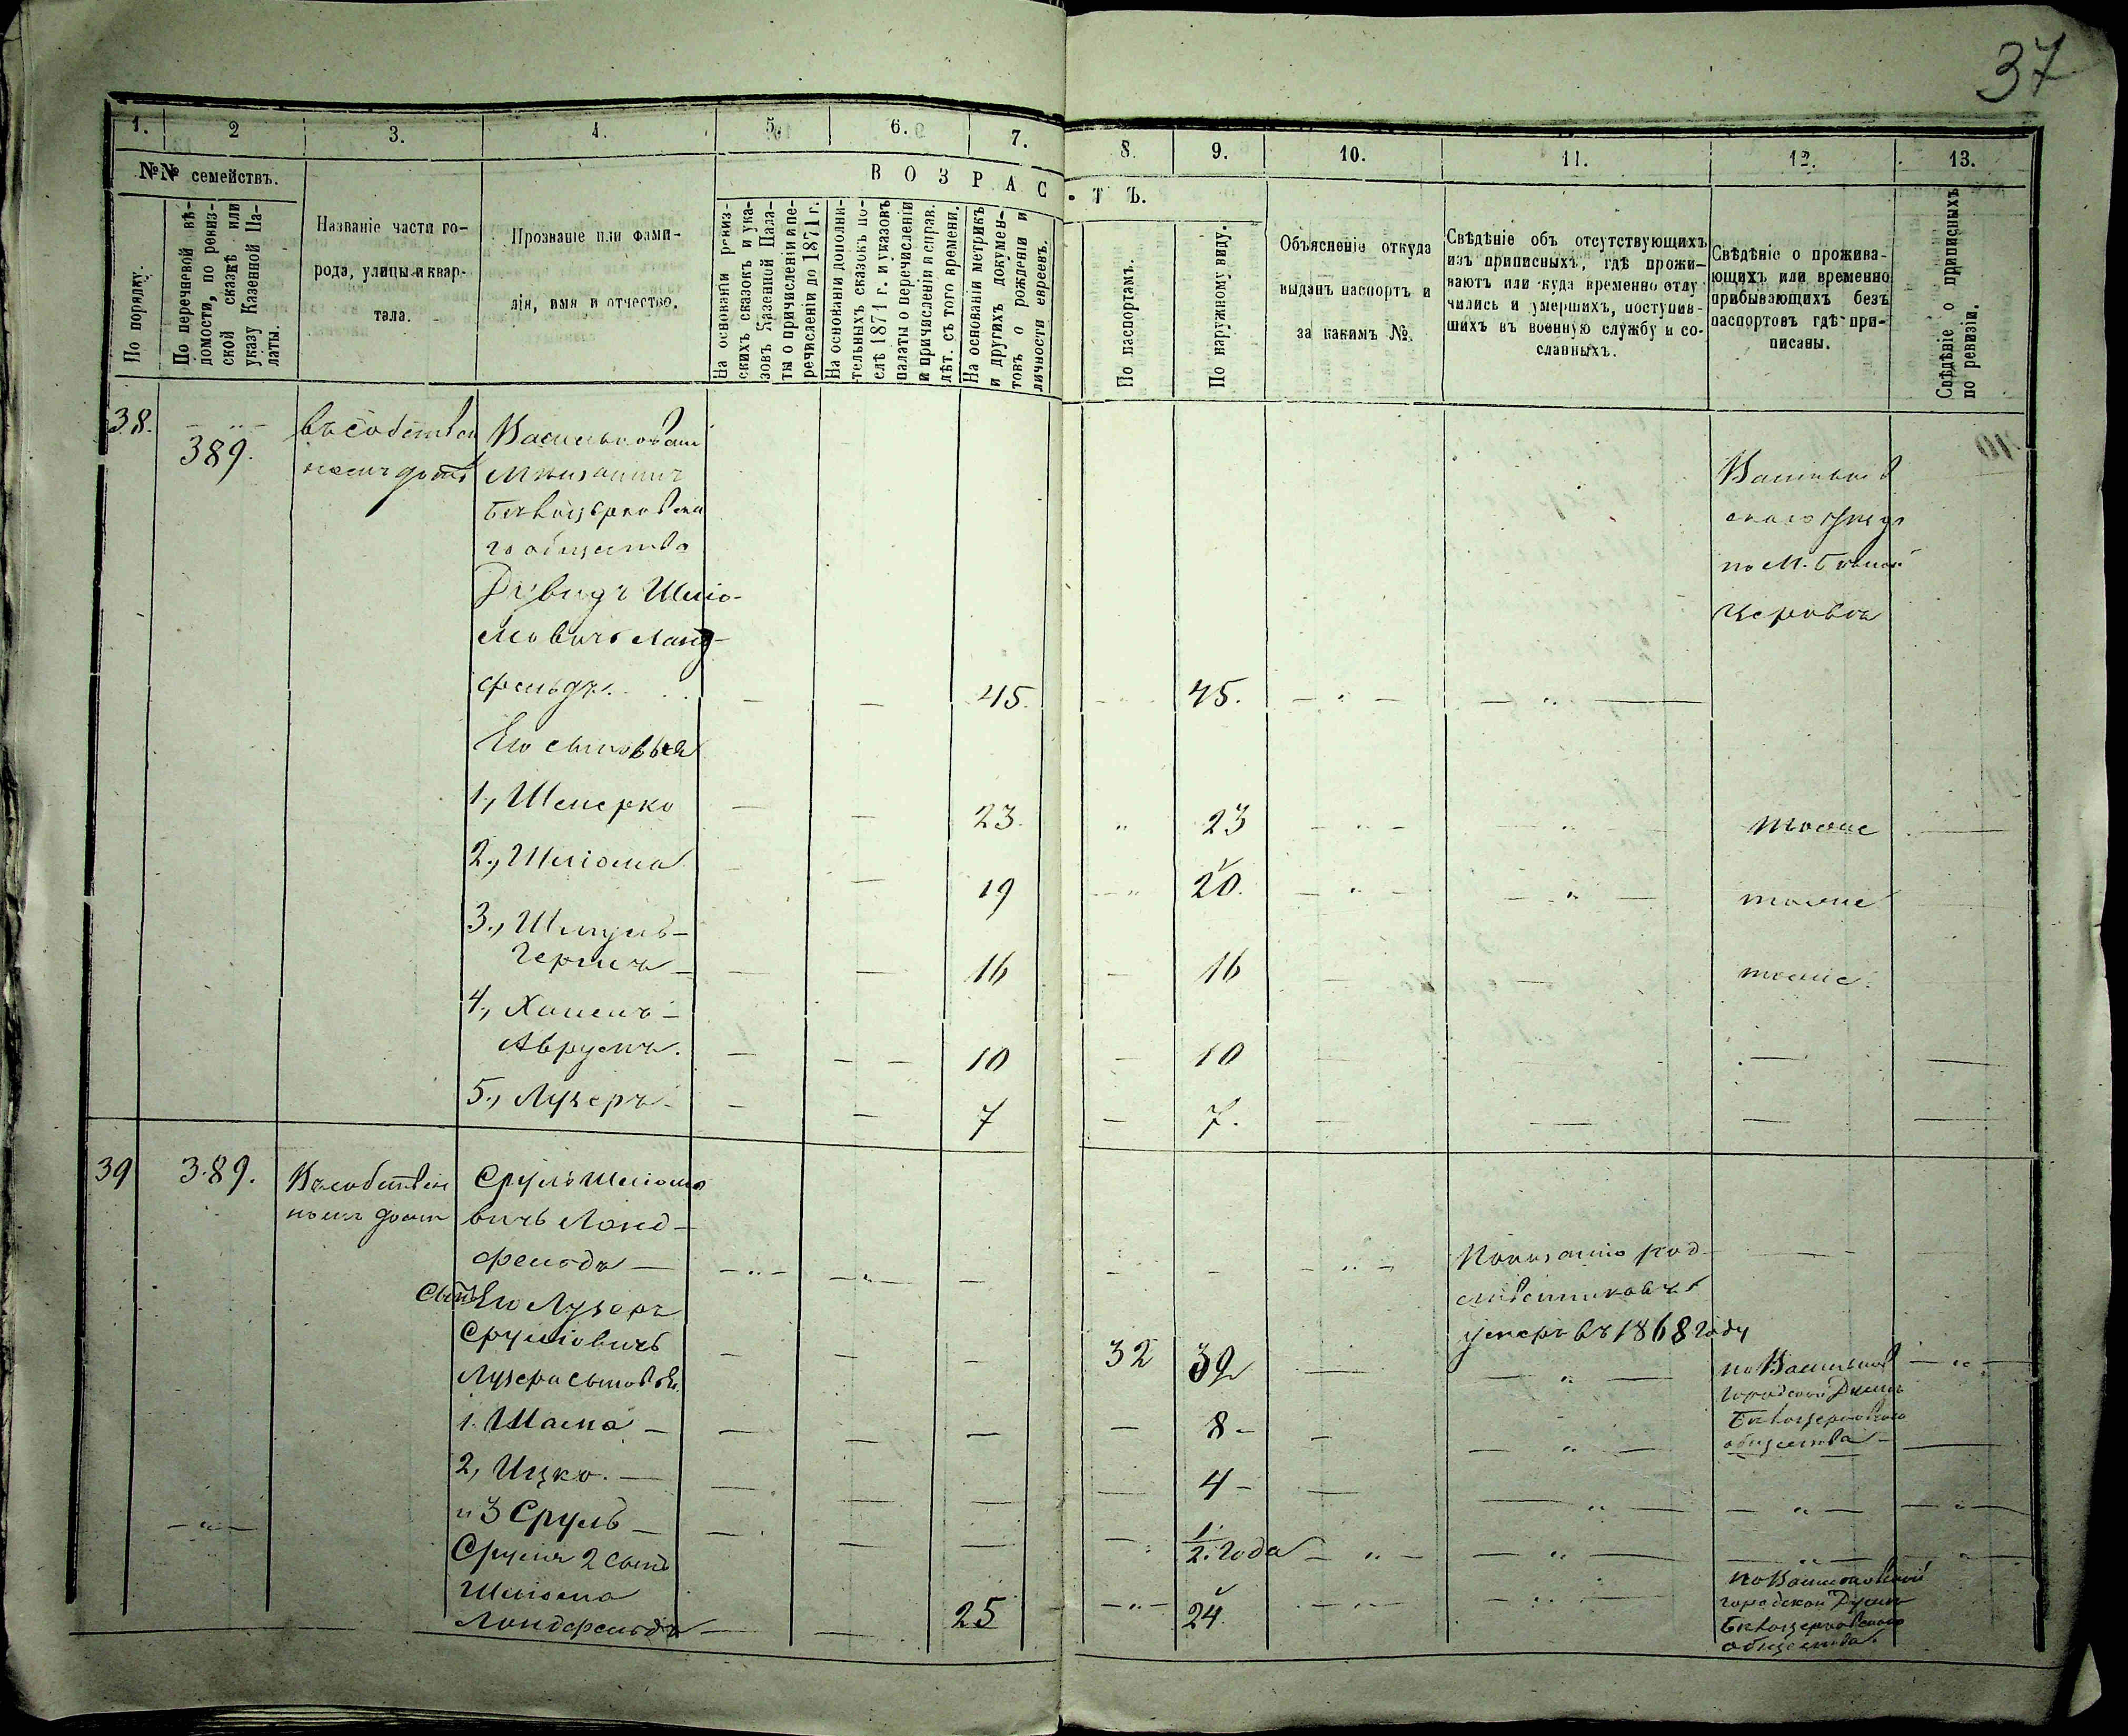 37
1. 2 3. 4. 5. 6. 7. 8. 9. 10. 11. 12. 13.
№№ семействъ.
По порядку.
По перечневой вѣ-
домости, по ревиз-
ской сказкѣ или
указу Казенной Па-
латы.
Названіе части го-
рода, улицы и квар-
тала.
Прозваніе или фами-
лія, имя и отчество.
ВОЗРАС-ТЪ.
На основаніи ревиз-
скихъ сказокъ и ука-
зовъ Казенной Пала-
ты о причисленіи и пе-
речисленіи до 1871 г.
На основаніи дополни-
тельныхъ сказокъ по-
слѣ 1871 г. и указовъ
палаты о перечисленіи
и причисленіи и справ.
лѣт. съ того времени.
На основаніи метрикъ
и другихъ докумен-
товъ о рожденіи и
личности евреевъ.
По паспортамъ.
По наружному виду.
Объясненіе откуда
выданъ паспортъ и
за какимъ №.
Свѣдѣніе объ отсутствующихъ
изъ приписныхъ, гдѣ прожи-
ваютъ или куда временно отлу-
чились и умершихъ, поступив-
шихъ въ военную службу и со-
сланныхъ.
Свѣдѣніе о прожива-
ющихъ или временно
прибывающихъ безъ
паспортовъ гдѣ при-
писаны.
Свѣдѣніе о приписныхъ
по ревизіи.
38.
389.
въ собствен
номъ домѣ
Васильковскій
Мѣщанинъ
Бѣлоцерковска
го общества
Дувидъ Шліо-
мовичъ Ланд-
фельдъ. 45. 45.
Васильков
скаго уѣзда
по М. Бѣлой
Церкви
Его сыновья
1., Шмерко 23. 23 тоже
2., Шліома 19 20. тоже
3., Шмуль-
Гершъ 16 16 тоже.
4., Хаимъ-
Аврумъ. 10 10
5., Лузеръ 7 7.
39 389. Въ собствен
номъ домѣ
Сруль Шліомо
вичъ Ланд-
фельдъ
Показанію род
ственниковъ
умеръ въ 1868 году
Сынъ Его Лузеръ
Сруліовичъ 32 32
по Васильков
городской Думѣ
Бѣлоцерковскаго
общества
Лузера сыновья.
1. Шама 8
2, Ицко. 4
и 3 Сруль 1/2 года
Сруля 2 сынъ
Шліома
Ландфельдъ 25 24.
по Васильковской
городской Думѣ
Бѣлоцерковскаго
общества.